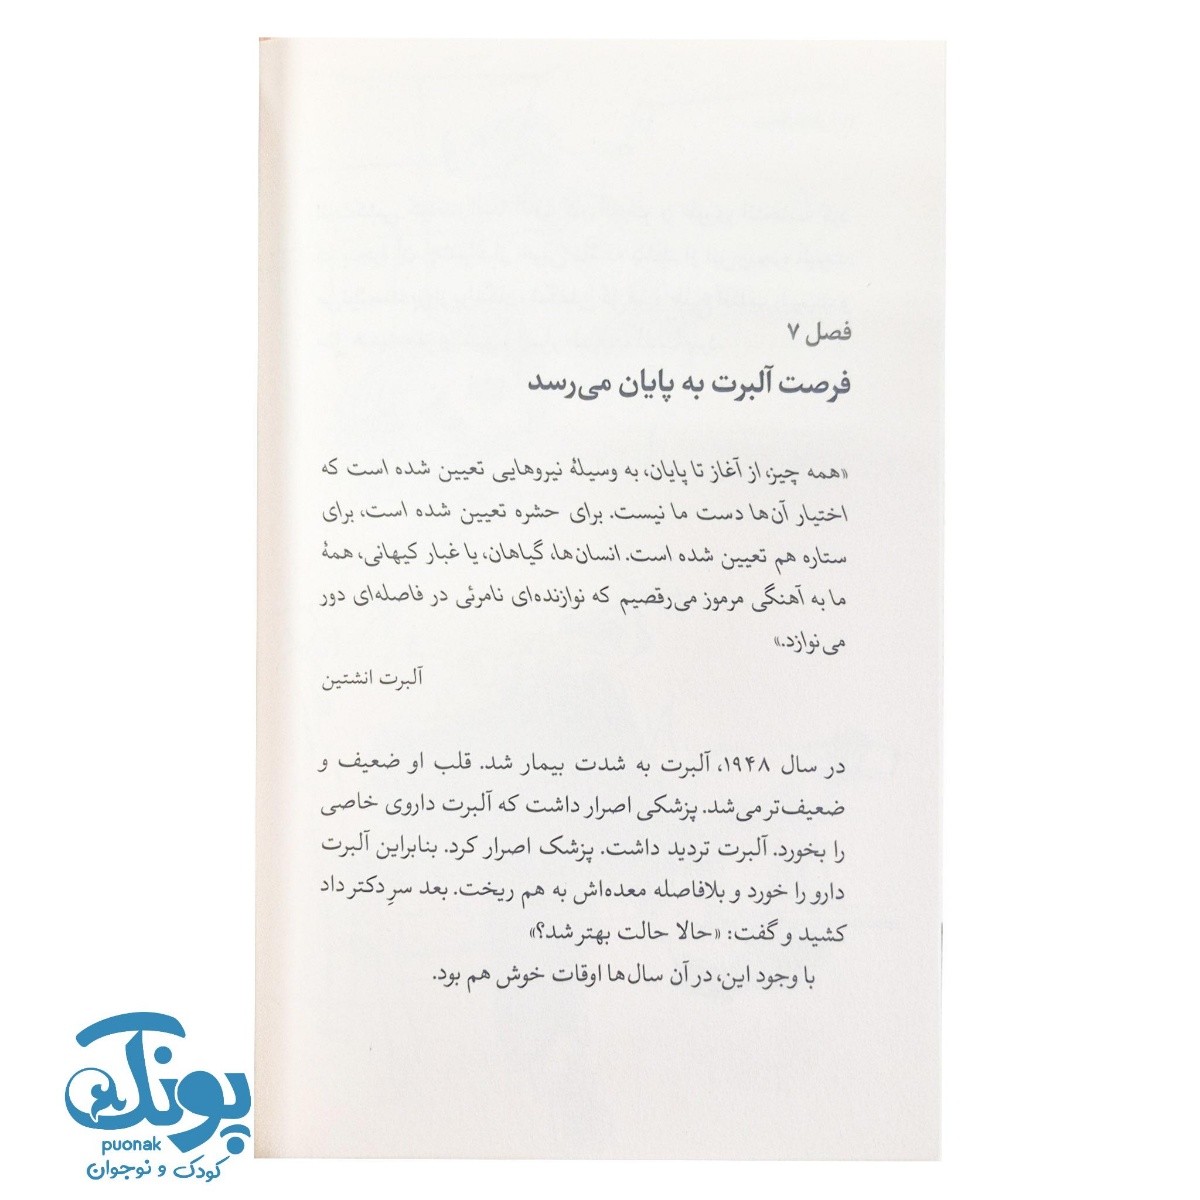 فصل ۷
فرصت آلبرت به پایان می‌رسد
«همه چیز، از آغاز تا پایان، به وسیلهٔ نیروهایی تعیین شده است که
اختیار آن‌ها دست ما نیست. برای حشره تعیین شده است، برای
ستاره هم تعیین شده است. انسان‌ها، گیاهان، یا غبار کیهانی، همهٔ
ما به آهنگی مرموز می‌رقصیم که نوازنده‌ای نامرئی در فاصله‌ای دور
می‌نوازد.»
آلبرت انشتین
در سال ۱۹۴۸، آلبرت به شدت بیمار شد. قلب او ضعیف و
ضعیف‌تر می‌شد. پزشکی اصرار داشت که آلبرت داروی خاصی
را بخورد. آلبرت تردید داشت. پزشک اصرار کرد. بنابراین آلبرت
دارو را خورد و بلافاصله معده‌اش به هم ریخت. بعد سرِ دکتر داد
کشید و گفت: «حالا حالت بهتر شد؟»
با وجود این، در آن سال‌ها اوقات خوش هم بود.
پونک
puonak
کودک و نوجوان